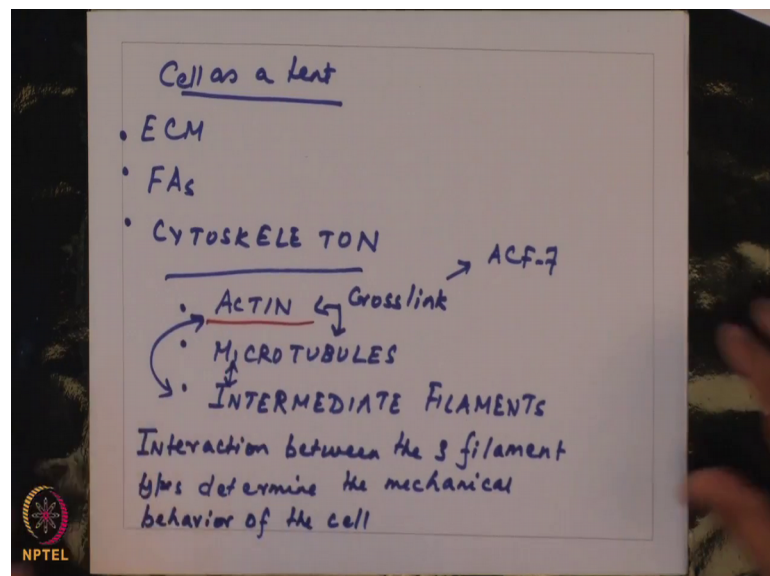 Cell as a tent
• ECM
• FAs
• CYTOSKELETON
→ ACF-7
• ACTIN Crosslink
• MICROTUBULES
• INTERMEDIATE FILAMENTS
Interaction between the 3 filament
types determine the mechanical
behavior of the cell
NPTEL